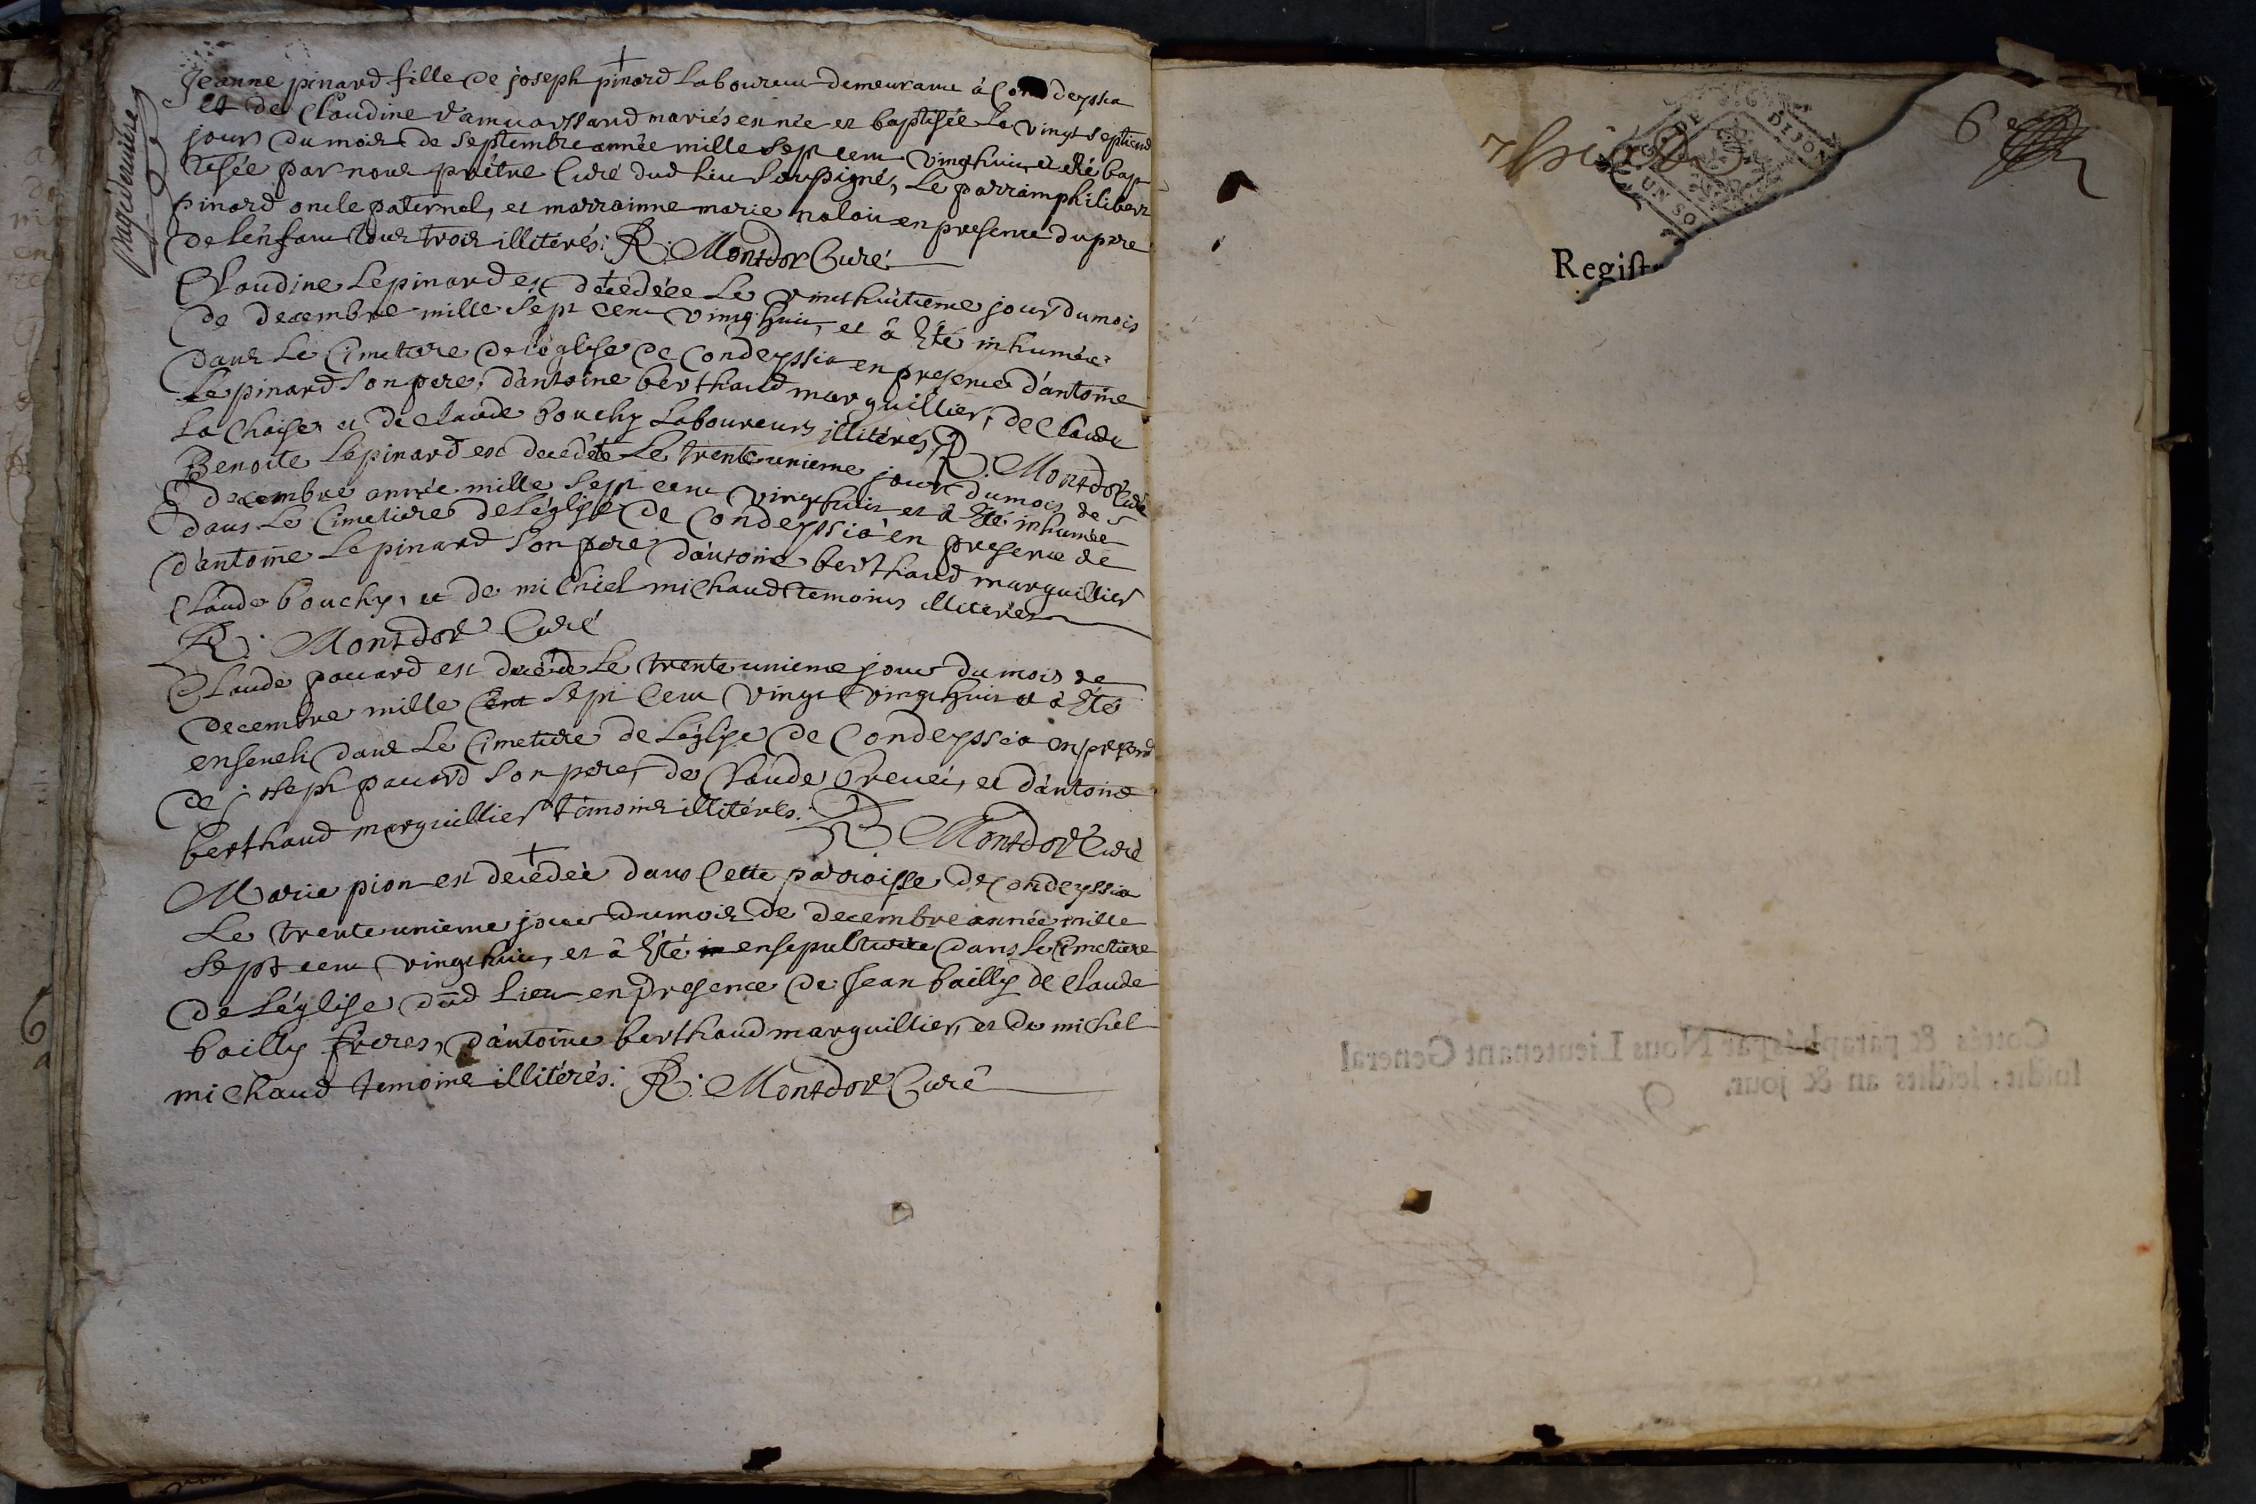 page dernière
Jeanne pinard fille de joseph pinard Laboureur demeurant à Condeyssia
et de Claudine mariés est née et baptisée le vingt septieme
jour du mois de septembre année mille sept cent vingthuit et été bap
tisée par nous prêtre Curé dud lieu Soussigné, Le parrain philibert
pinard oncle paternel, et marrainne marie en presence du pere
de lénfant tous trois illiterés: R: Montdor Curé
Claudine Lepinard est décédéé Le vinthuitieme jour du mois
de decembre mille sept cent vingthuit, et â êté inhumée
dans Le Cimetiere de léglise de Condeyssia en presence d'antoine
Lepinard son pere, d'antoine berthaud marguillier, de Claude
La Chaise et de claude bouchy Laboureurs illitérés, R: Montdor Curé
Benoite Lepinard est decédée Le trente unieme jour du mois de
decembre année mille sept cent vingthuit et â êté inhumée
dans Le Cimetiere de Léglise de Condeyssia en presence de
d'antoine Lepinard Son pere, d'antoine berthaud marguillier
Claude bouchy, et de michiel michaud temoins illitérés
R: Montdor Curé
Claude pauard est decédé Le trente unieme jour du mois de
decembre mille Cent sept Cent vingt vingthuit et â êté
enseveli dans Le Cimetiere de Léglise de Condeyssia en
de joseph pauard Son pere, de Claude et d'antoine
berthaud marguillier témoins illitérés: R Montdor Curé
Marie pion est decédée dans Cette parroisse de Condeyssia
Le trente unieme jour du mois de decembre année mille
Sept cent vingthuit, et â êté in ensepulturée dans Le Cimetiere
de Léglise dud Lieu en presence de Jean bailly de Claude
bailly freres, d'antoine berthaud marguillier, et de michel
michaud temoins illitérés: R: Montdor Curé
6e
G. DE DIJON
UN SO
Regist
Cottés & paraphés par Nous Lieutenant General
susdit, lesdits an & jour.